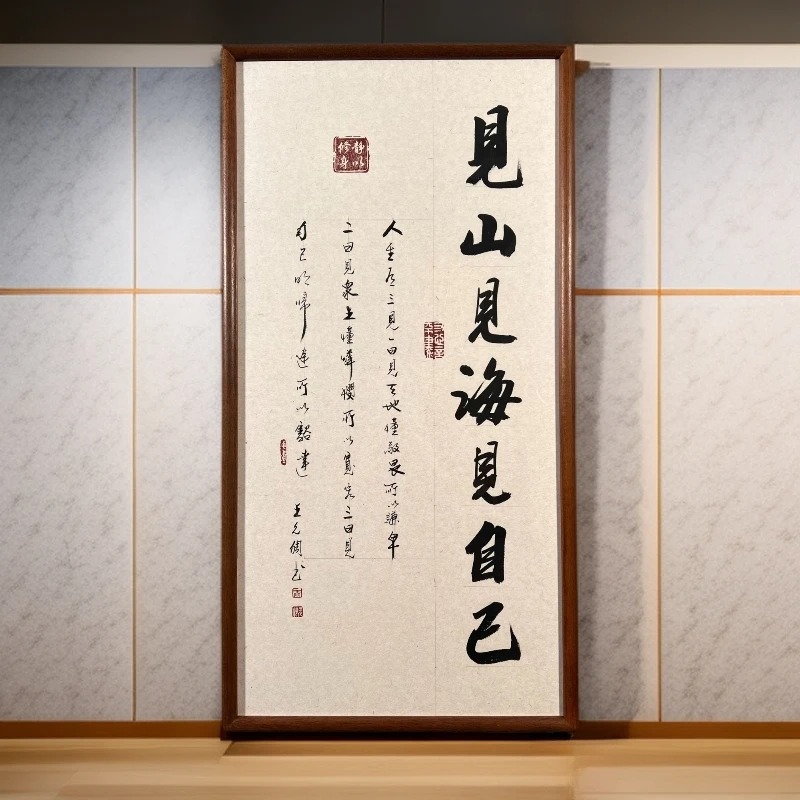 見山見海見自己
人生有三見一曰見天地懂敬畏所以謙卑
二曰見衆生懂憐憫所以寬容三曰見
自己明歸途所以豁達
王元 书
靜以修身